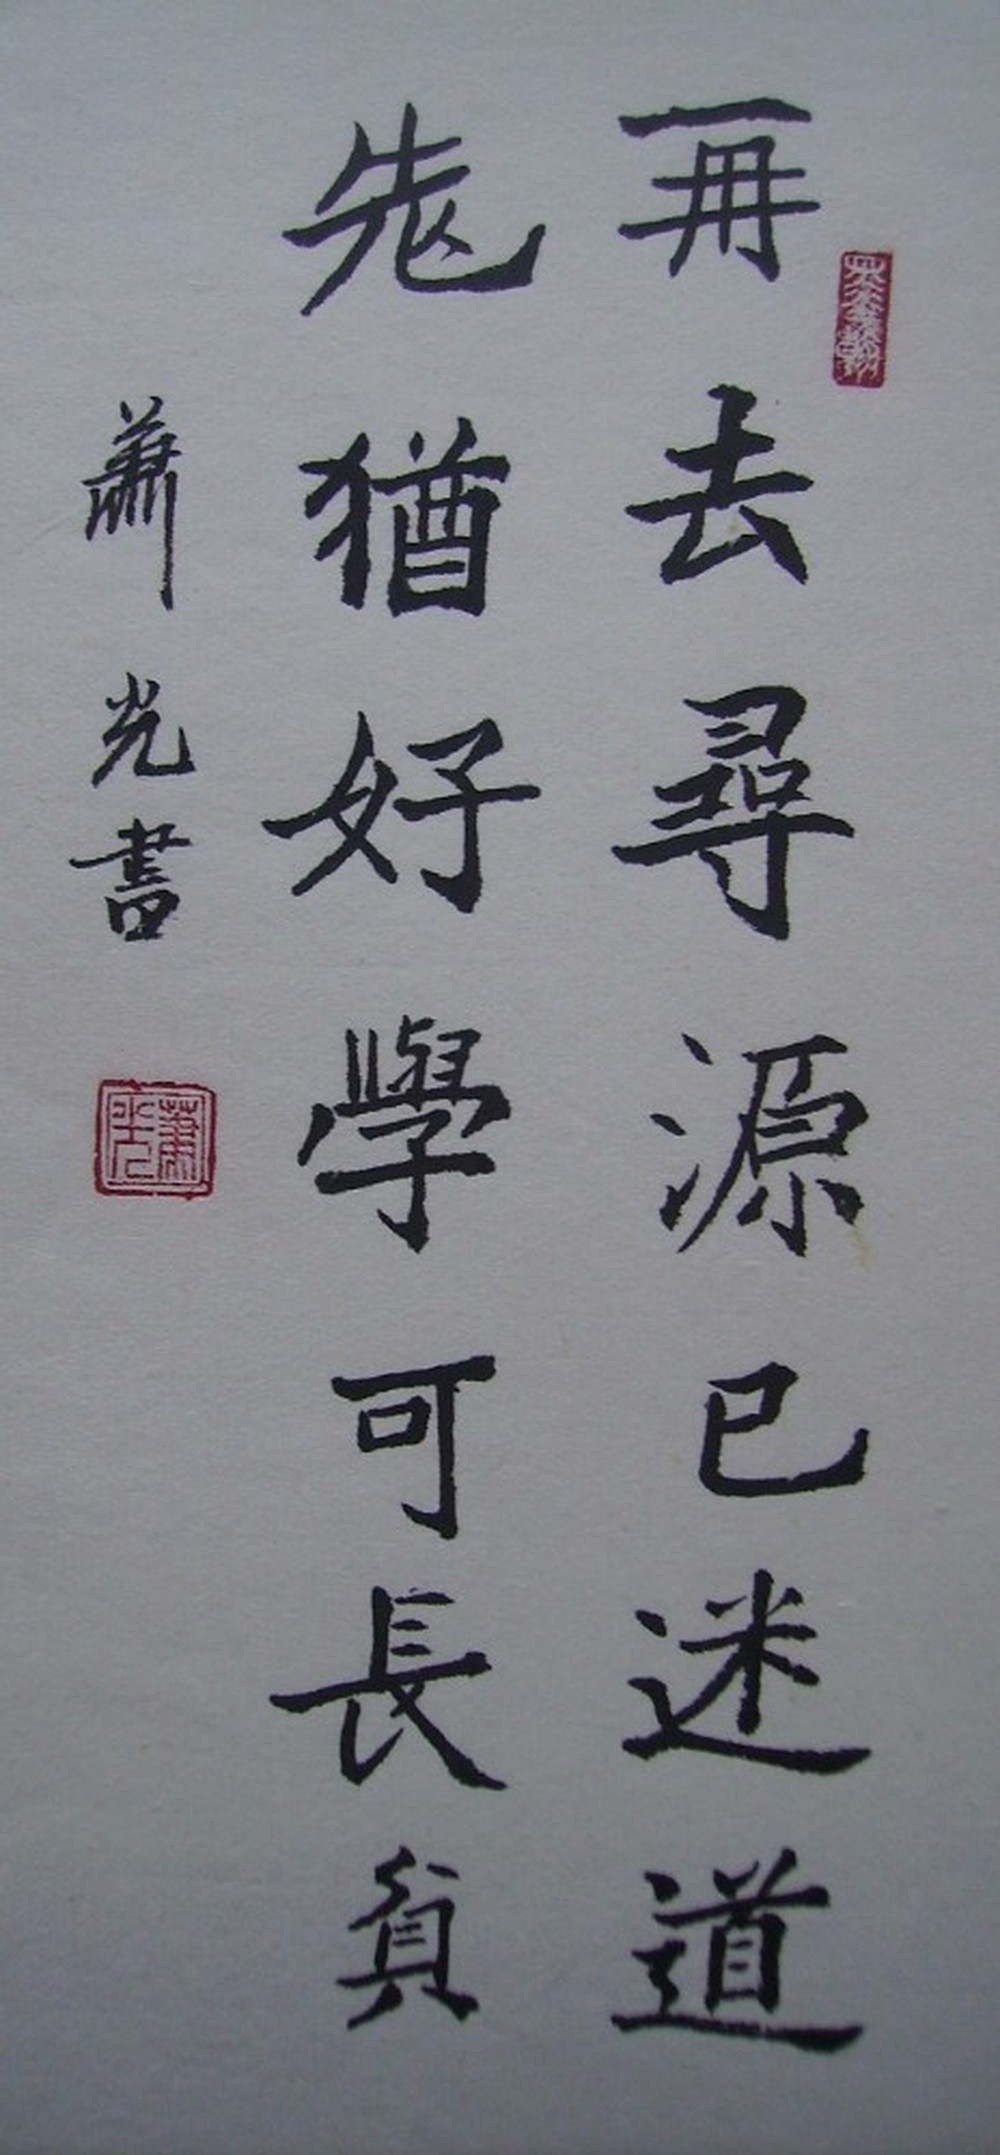 再去尋源已迷道
老猶好學可長貧
蕭光書
蕭光